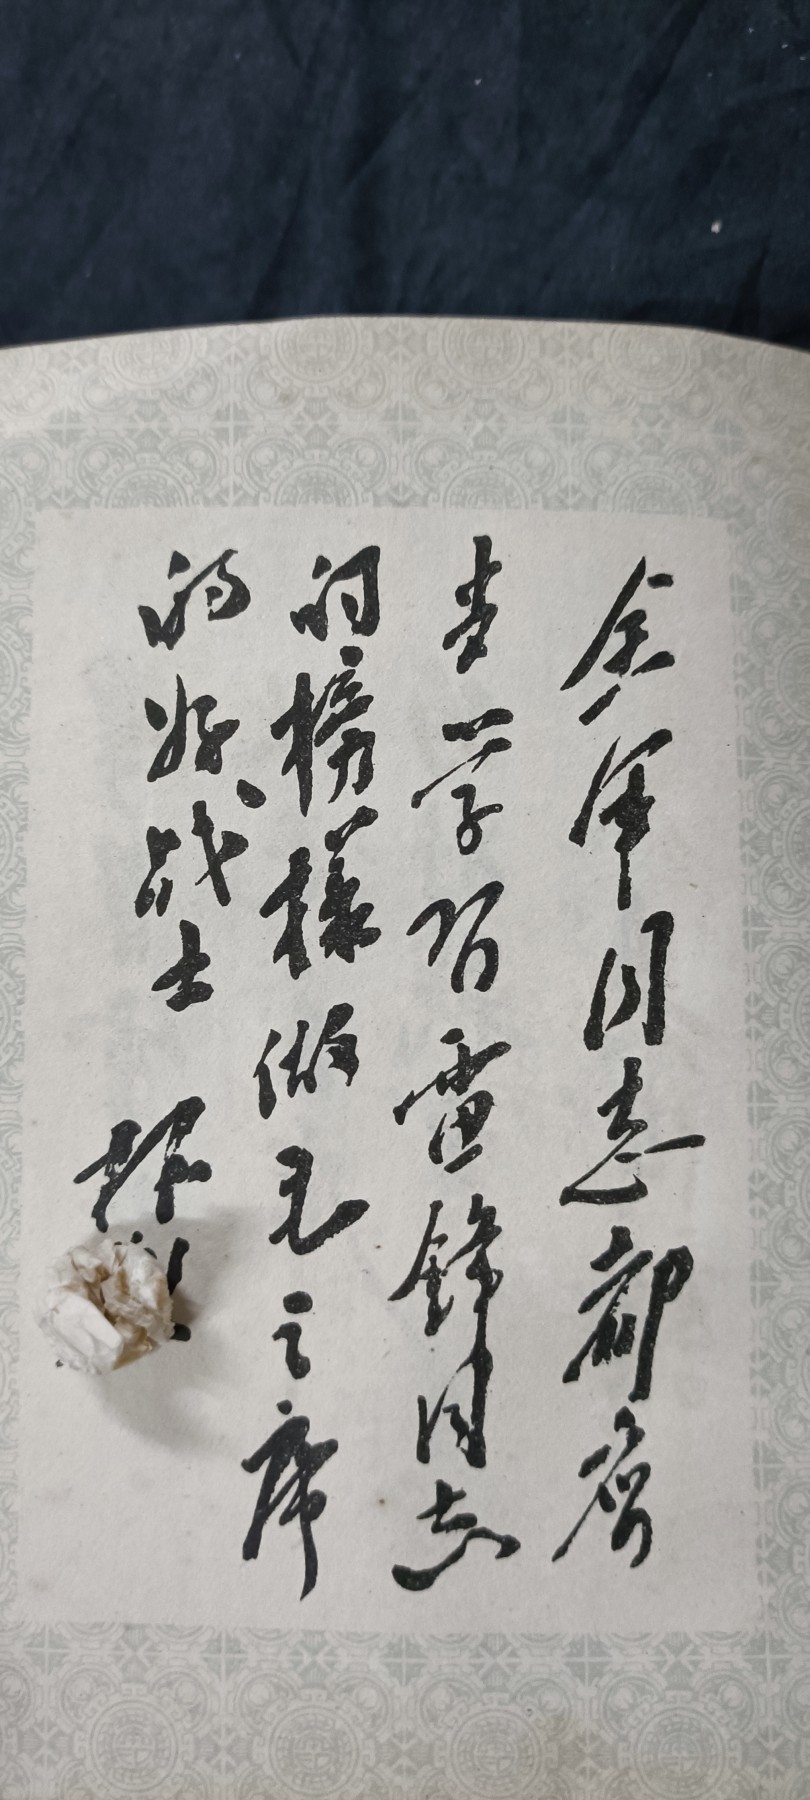 全军同志都应
当学习雷锋同志
的榜樣做毛主席
的好战士 林